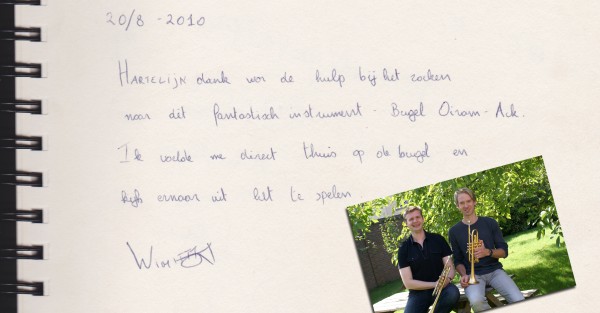 20/8 - 2010
Hartelijk dank voor de hulp bij het zoeken
naar dit fantastisch instrument - Bugel Oiram - Ack.
Ik voelde me direct thuis op de bugel en
kijk ernaar uit het te spelen
Wim